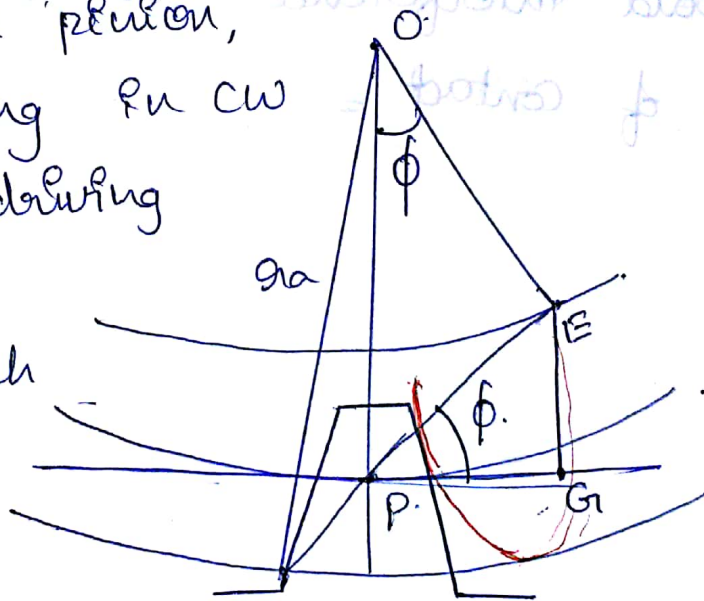 pinion,
O
ng in CW
driving
ϕ
ra
E
ϕ.
P.
G